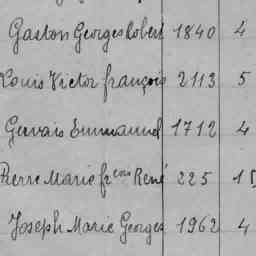 Gaston Georges Robert 1840 4
Louis Victor françois 2113 5
Gervais Emmanuel 1712 4
Pierre Marie frçois René 225 15
Joseph Marie Georges 1962 4